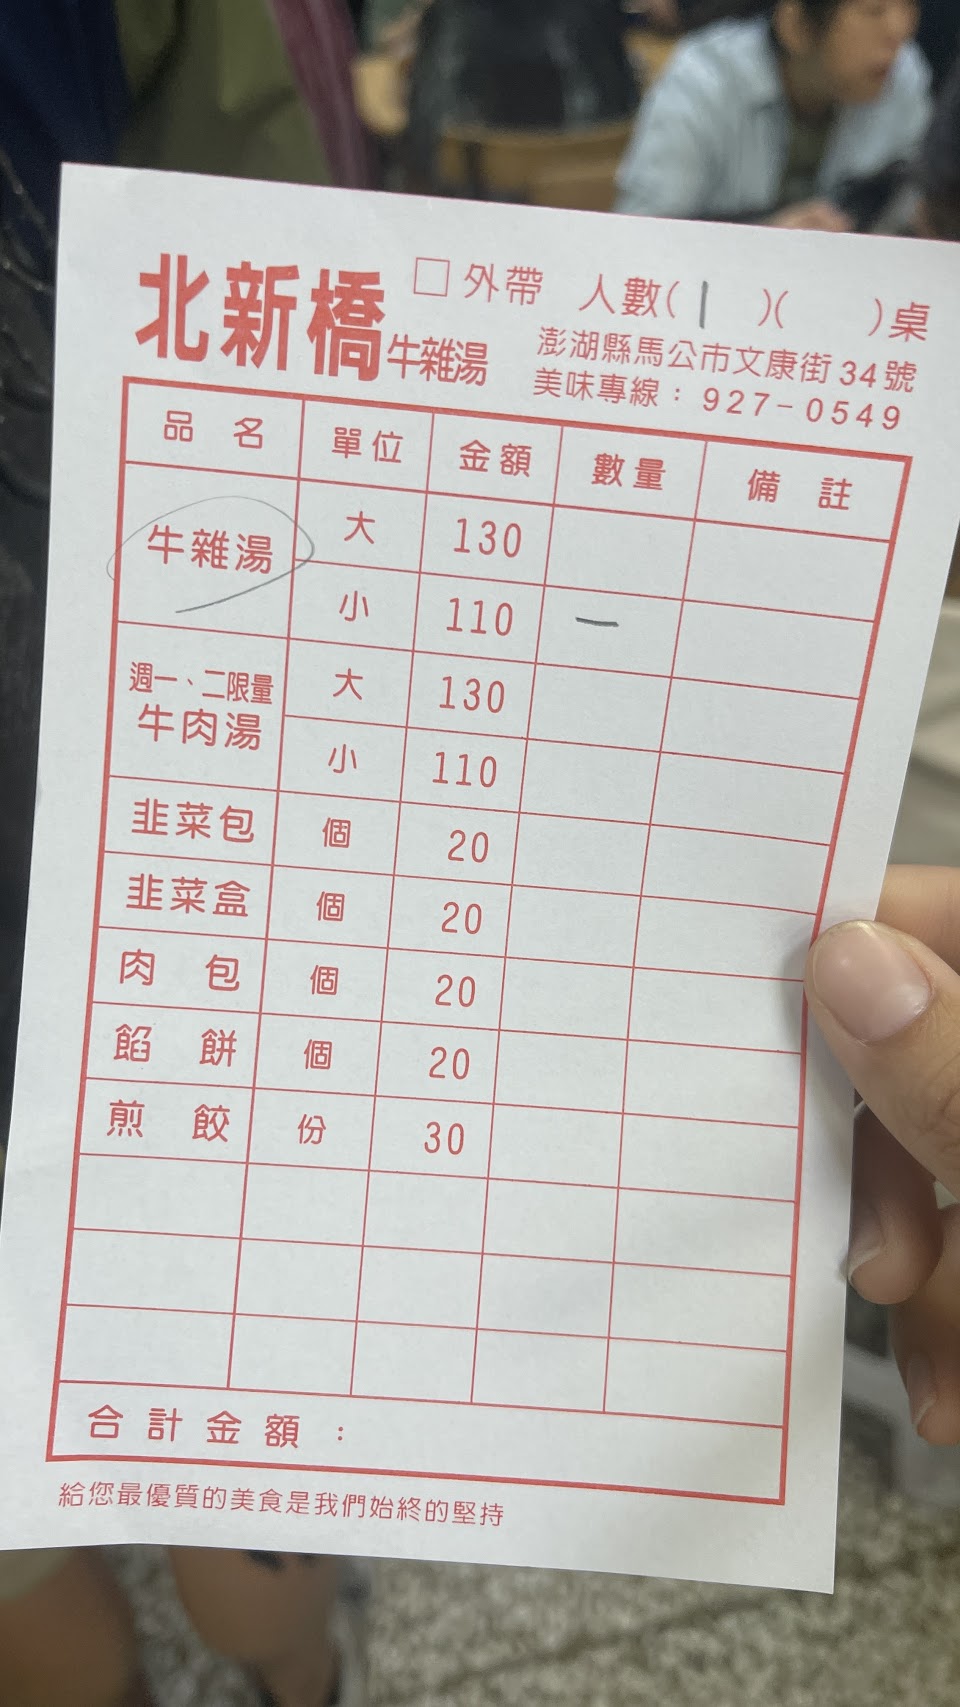 北新橋牛雜湯 □外帶 人數(1 )( )桌
澎湖縣馬公市文康街34號
美味專線：927-0549
品名 單位 金額 數量 備註
牛雜湯 大 130
小 110 一
週一、二限量
牛肉湯 大 130
小 110
韭菜包 個 20
韭菜盒 個 20
肉包 個 20
餡餅 個 20
煎餃 份 30
合計金額：
給您最優質的美食是我們始終的堅持